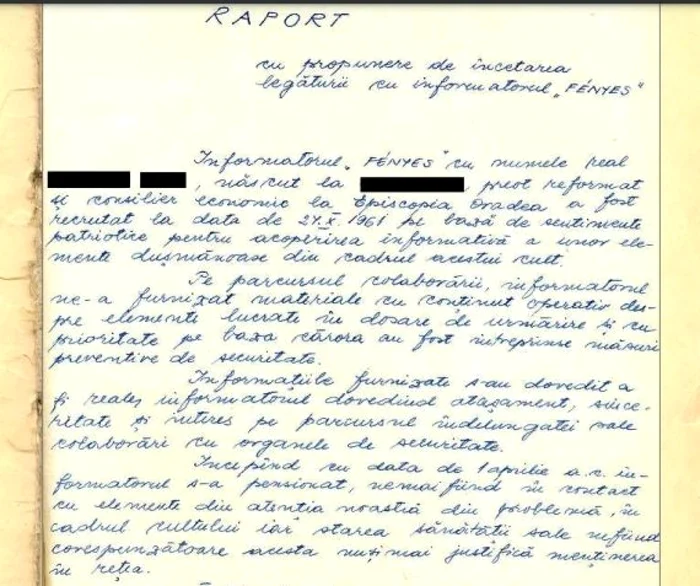 RAPORT
cu propunere de incetarea
legăturii cu informatorul „FÉNYES"
Informatorul „FÉNYES" cu numele real
, născut la , preot reformat
și consilier economic la Episcopia Oradea a fost
recrutat la data de 24.X.1961 pe bază de sentimente
patriotice pentru acoperirea informativă a unor ele-
mente dușmănoase din cadrul acestui cult.
Pe parcursul colaborării, informatorul
ne-a furnizat materiale cu conținut operativ des-
pre elemente lucrate în dosare de urmărire și cu
prioritate pe baza cărora au fost întreprinse măsuri
preventive de securitate.
Informațiile furnizate s-au dovedit a
fi reale, informatorul dovedind atașament, since-
ritate și interes pe parcursul îndelungatei sale
colaborări cu organele de securitate.
Începind cu data de 1 aprilie a.c. in-
formatorul s-a pensionat, nemaifiind în contact
cu elemente din atenția noastră din problemă, în
cadrul cultului iar starea sănătății sale nefiind
corespunzătoare acesta nu-și mai justifică menținerea
în rețea.